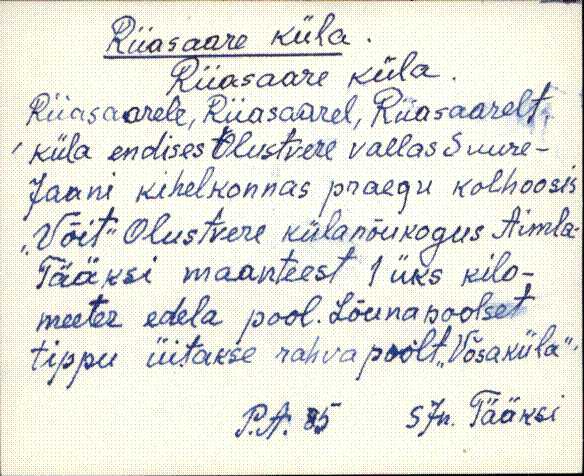 Riiasaare küla.
Riiasaare küla.
Riiasaarele, Riiasaarel, Riiasaarelt,
küla endises Olustvere vallas Suure-
Jaani kihelkonnas praegu kolhoosis
„Võit" Olustvere külanõukogus Aimla-
Tääksi maanteest 1 üks kilo-
meeter edela pool. Lõunapoolset
tippu üitakse rahva poolt „Võsaküla".
P.A. 85 SJn. Tääksi